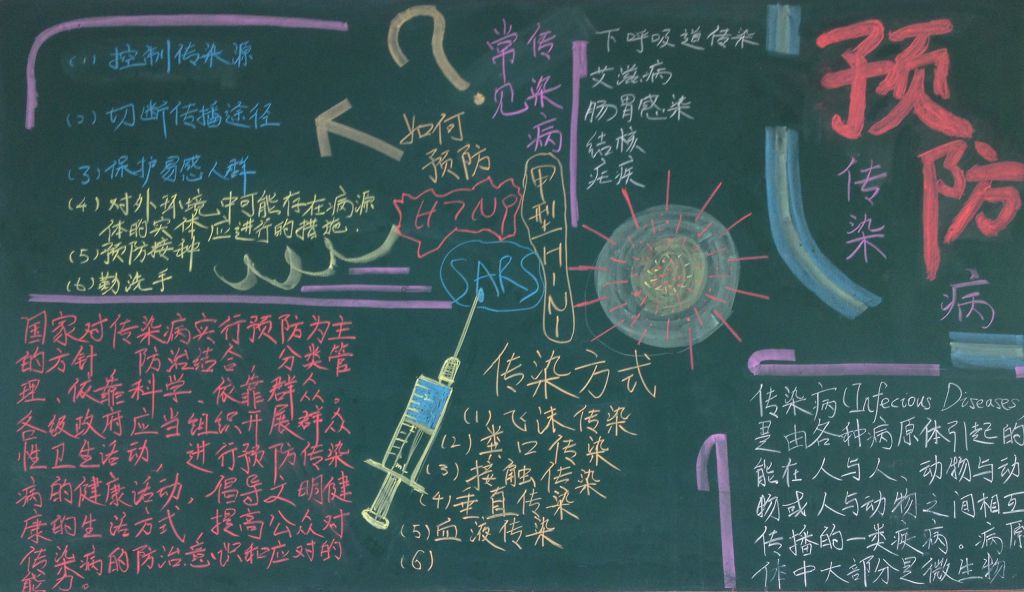 预防
传染
病
(1) 控制传染源
(2) 切断传播途径
(3) 保护易感人群
(4) 对外环境中可能存在病源
体的实体应进行的措施.
(5) 预防接种
(6) 勤洗手
?
如何
预防
常见
传染病
下呼吸道传染
艾滋病
肠胃感染
结核
疟疾
H7N9
SARS
甲型H1N1
国家对传染病实行预防为主
的方针,防治结合,分类管
理、依靠科学、依靠群众。
各级政府应当组织开展群众
性卫生活动,进行预防传染
病的健康活动,倡导文明健
康的生活方式,提高公众对
传染病的防治意识和应对的
能力。
传染方式
(1) 飞沫传染
(2) 粪口传染
(3) 接触传染
(4) 垂直传染
(5) 血液传染
(6)
传染病(Infecious Diseases
是由各种病原体引起的
能在人与人、动物与动
物或人与动物之间相互
传播的一类疾病。病原
体中大部分是微生物